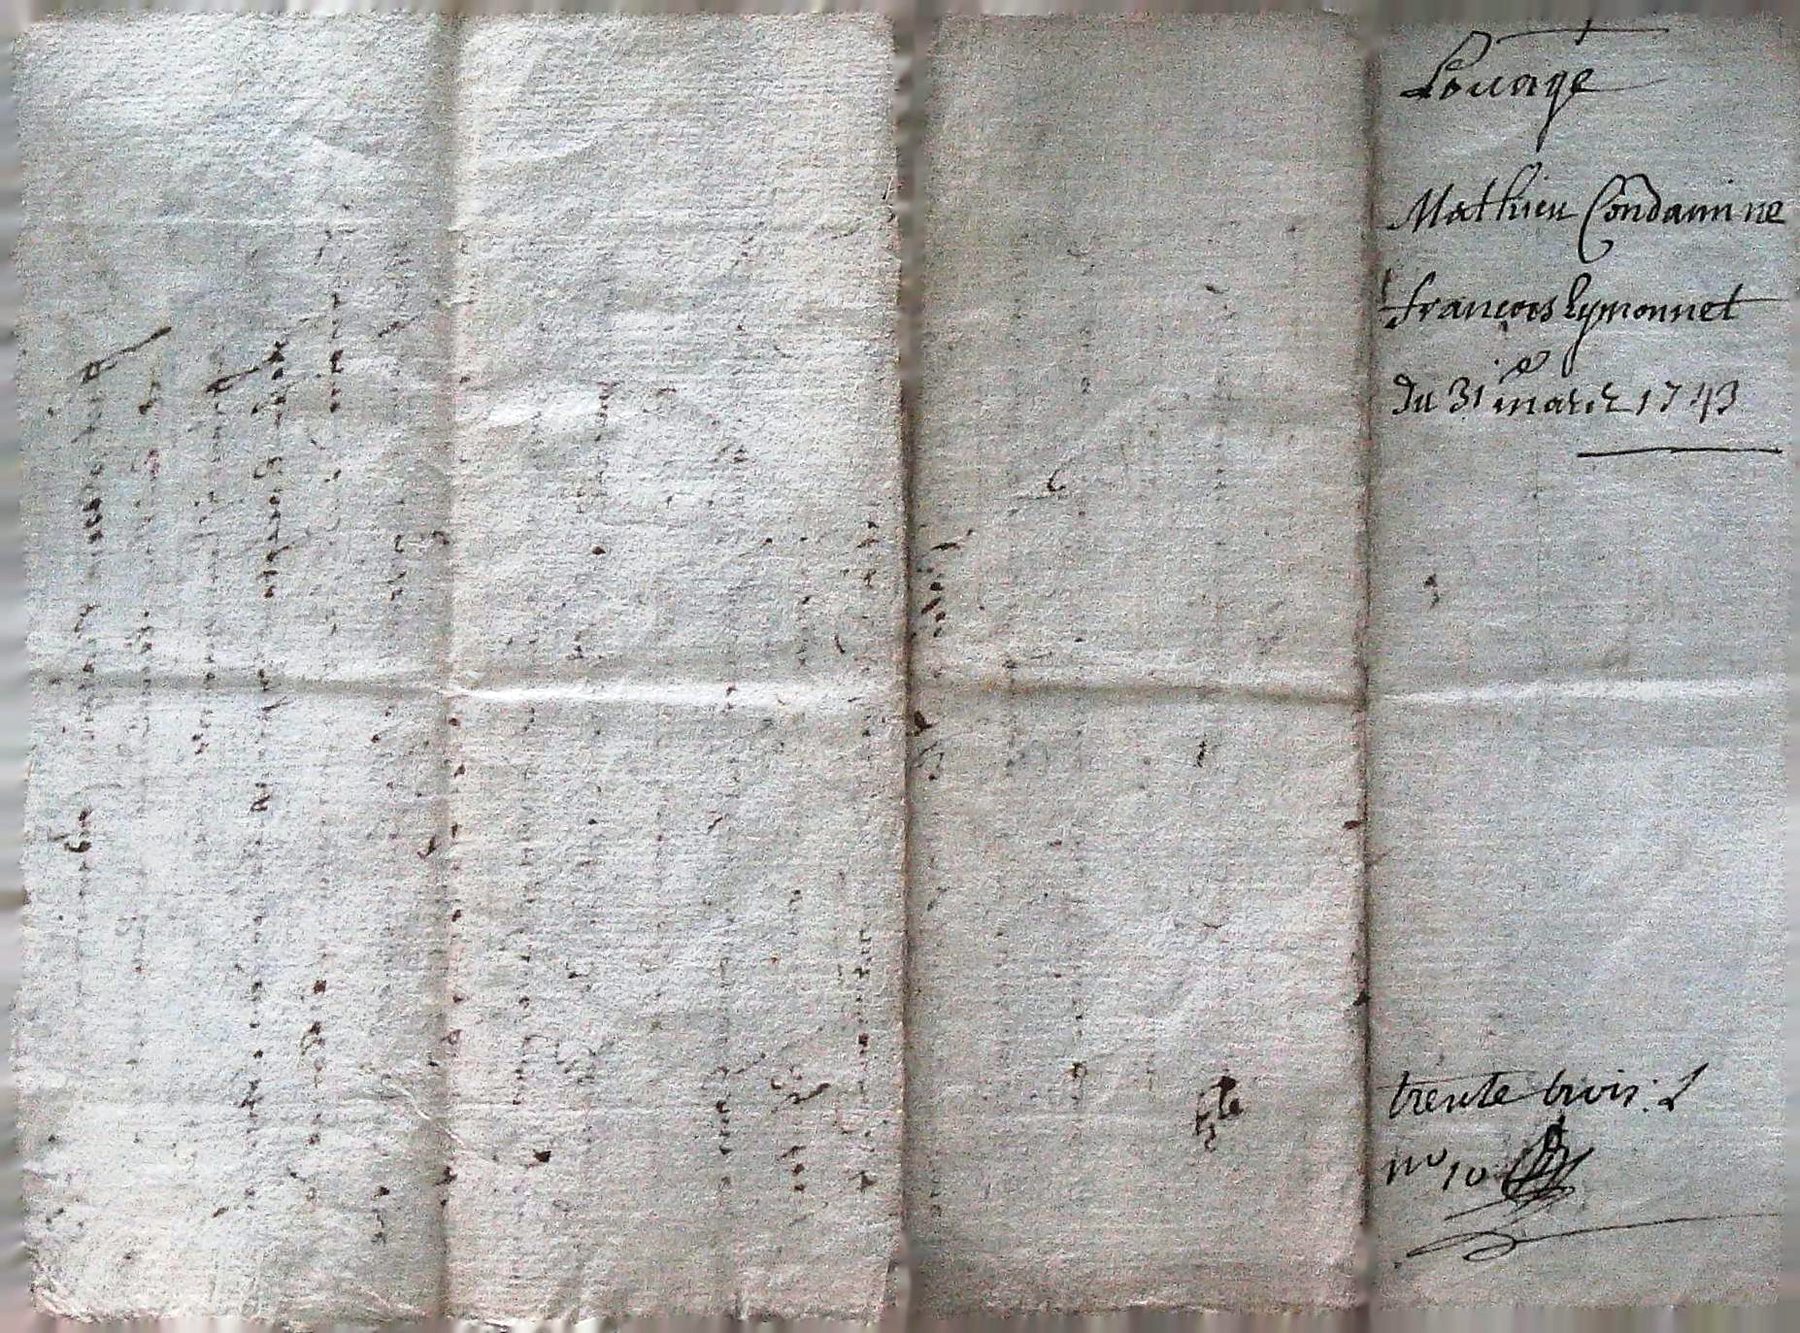 Louage
Mathieu Condamine
françois Eymonnet
Du 31e mars 1743
trente trois: L
no 10